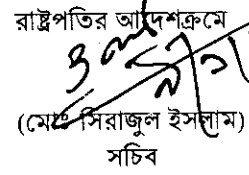 রাষ্ট্রপতির আদেশক্রমে
(মোঃ সিরাজুল ইসলাম)
সচিব